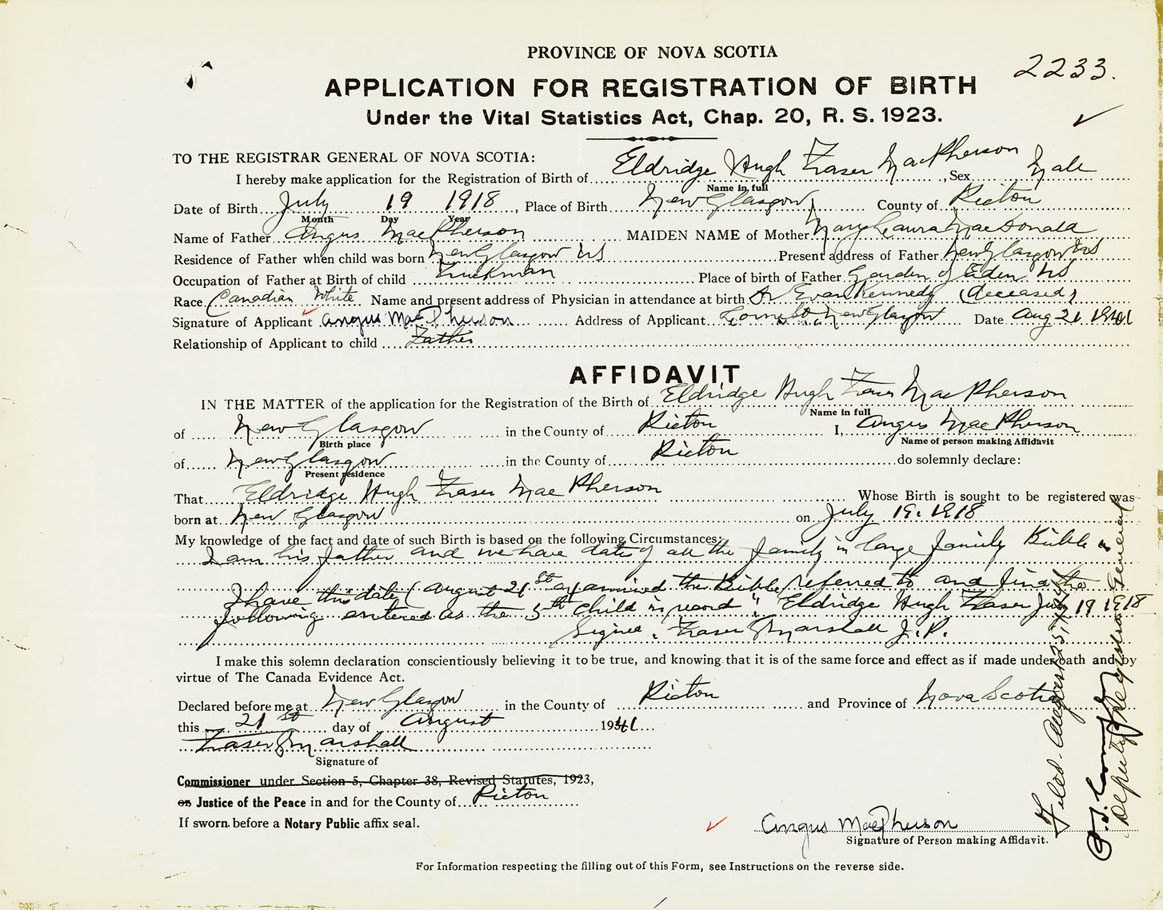 PROVINCE OF NOVA SCOTIA
2233.
APPLICATION FOR REGISTRATION OF BIRTH
Under the Vital Statistics Act, Chap. 20, R. S. 1923.
TO THE REGISTRAR GENERAL OF NOVA SCOTIA:
I hereby make application for the Registration of Birth of Eldridge Hugh Fraser MacPherson, Sex Male
Name in full
Date of Birth July 19 1918, Place of Birth New Glasgow, County of Pictou
Month Day Year
Name of Father Angus MacPherson MAIDEN NAME of Mother Mary Laura MacDonald
Residence of Father when child was born New Glasgow NS Present address of Father New Glasgow NS
Occupation of Father at Birth of child Place of birth of Father Garden of Eden NS
Race Canadian White Name and present address of Physician in attendance at birth Dr Evan Kennedy (deceased)
Signature of Applicant Angus MacPherson Address of Applicant New Glasgow Date Aug 21 1941
Relationship of Applicant to child Father
AFFIDAVIT
IN THE MATTER of the application for the Registration of the Birth of Eldridge Hugh Fraser MacPherson
Name in full
of New Glasgow in the County of Pictou I, Angus MacPherson
Birth place Name of person making Affidavit
of New Glasgow in the County of Pictou do solemnly declare:
Present residence
That Eldridge Hugh Fraser MacPherson Whose Birth is sought to be registered was
born at New Glasgow on July 19. 1918
My knowledge of the fact and date of such Birth is based on the following Circumstances:
I am his father and we have date of all the family in large family Bible &
I have this date (August 21st) examined the Bible referred to and find the
following entered as the 5th child in record "Eldridge Hugh Fraser July 19 1918
Signed, Fraser Marshall J.P.
I make this solemn declaration conscientiously believing it to be true, and knowing that it is of the same force and effect as if made under oath and by
virtue of The Canada Evidence Act.
Declared before me at New Glasgow in the County of Pictou and Province of Nova Scotia
this 21st day of August 1941.
Fraser Marshall
Signature of
Commissioner under Section 5, Chapter 38, Revised Statutes, 1923,
or Justice of the Peace in and for the County of Pictou
If sworn before a Notary Public affix seal.
Angus MacPherson
Signature of Person making Affidavit.
For Information respecting the filling out of this Form, see Instructions on the reverse side.
Filed. August 25, 1941
Deputy Registrar General